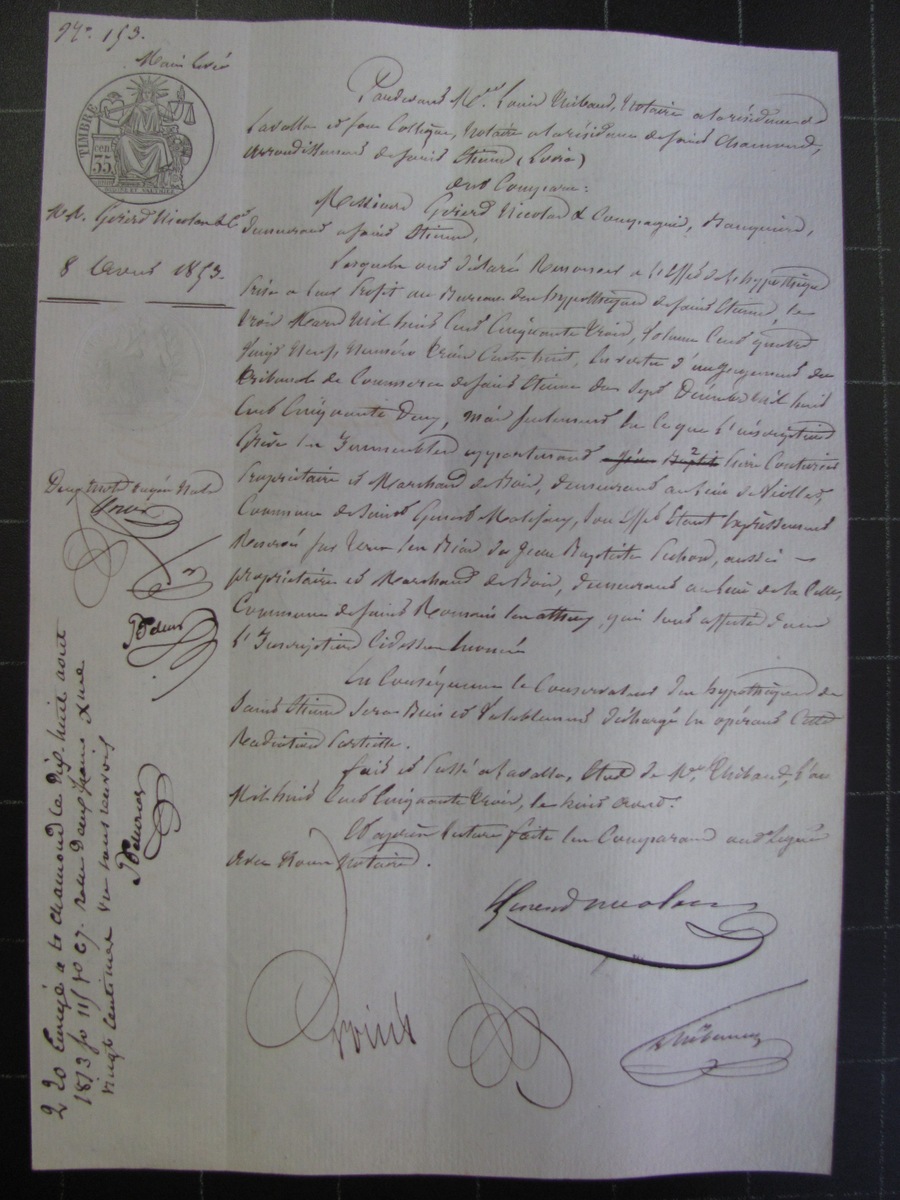 N° 153.
Main levée
TIMBRE
35
cen
M.M. Gerard Nicolas & Cie
8 Aout 1853.
Pardevant Me Louis Thibaud, Notaire a la résidence de
Lavalla et son Collègue, Notaire a la résidence de Saint Chamond,
Arrondissement de Saint Etienne (Loire)
Ont Comparu:
Messieurs Gerard Nicolas & Compagnie, Banquiers,
demeurant a Saint Etienne,
Lesquels ont déclaré Renoncer a l'Effet de l'hypothèque
Prise a leur Profit au Bureau des hypothèques de Saint Etienne le
Trois Mars Mil huit Cent Cinquante Trois, Volume Cent quatre
Vingt Neuf, Numéro Trois Cent huit, En vertu d'un Jugement du
Tribunal de Commerce de Saint Etienne du Sept Décembre Mil huit
Cent Cinquante Deux, mais seulement En Ce que l'inscription
Grève les Immeubles appartenant Jean Bapte
Propriétaire et Marchand de Bois, demeurant au lieu de
Commune de Saint Genest Malifaux, Son Effet Etant Expressément
Reservé sur tous les Biens de Jean Baptiste aussi
propriétaire et Marchand de Bois, demeurant au lieu de la
Commune de Saint Romain les atheux, qui sont affectés dans
l'Inscription Cidessus Enoncée
En Conséquence le Conservateur des hypothèques de
Saint Etienne Sera Bien et Valablement déchargé En opérant Cette
Radiation Partielle.
fait et Passé a Lavalla, Etude de Me Thibaud, L'an
Mil huit Cent Cinquante Trois, le huit Aout.
Et après lecture faite les Comparants ont Signé
Avec Nous Notaires.
Deux mots rayés Nuls
Gerard nicolas
Thibaud
Enregé a St chamond le dix huit août
1853 fo 115 vo C7. reçu deux francs & une
vingt centimes